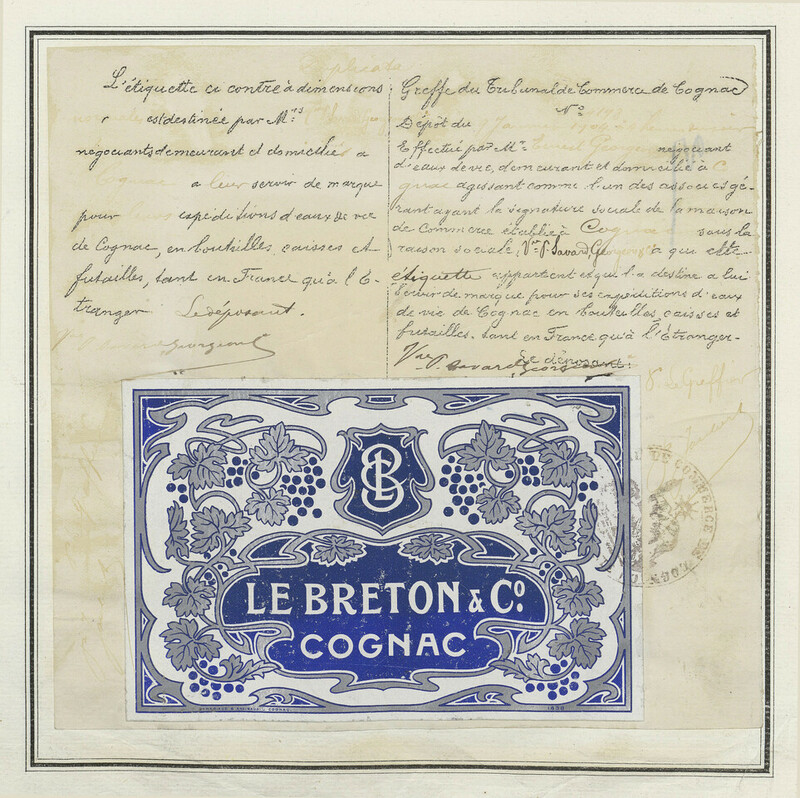 L'étiquette ci contre à dimensions
est destinée par M.rs
négociants demeurant et domiciliés à
à leur servir de marque
pour expéditions d'eaux de vie
de Cognac, en bouteilles caisses et
futailles, tant en France qu'à l'É-
tranger Le déposant.
Greffe du Tribunal de Commerce de Cognac
No
Dépôt du
Effectué par M. Georgeon négociant
d'eaux de vie, demeurant et domicilié à C
gnac agissant comme l'un des associés gé-
rant ayant la signature sociale de la maison
de Commerce établie à Cognac sous la
raison sociale, Vve P. Savard Georgeon à qui cette
étiquette appartient et qui l'a destine à lui
servir de marque pour ses expéditions d'eaux
de vie de Cognac en bouteilles, caisses et
futailles. tant en France qu'à l'Étranger-
Le déposant.
Vve P. Savard Georgeon
Le Greffier
DE COMMERCE DE
LE BRETON & Co.
COGNAC